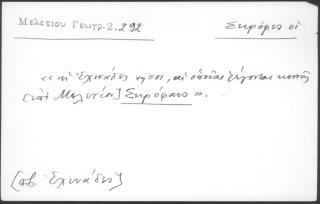 Μελετίου Γεωγρ. 2, 292
Σκρόφες οἱ
« αἱ Ἐχινάδες νῆσοι, αἱ ὁποῖαι λέγονται κοινῶς
Σκρόφαις ».
[πβ. Ἐχινάδες]